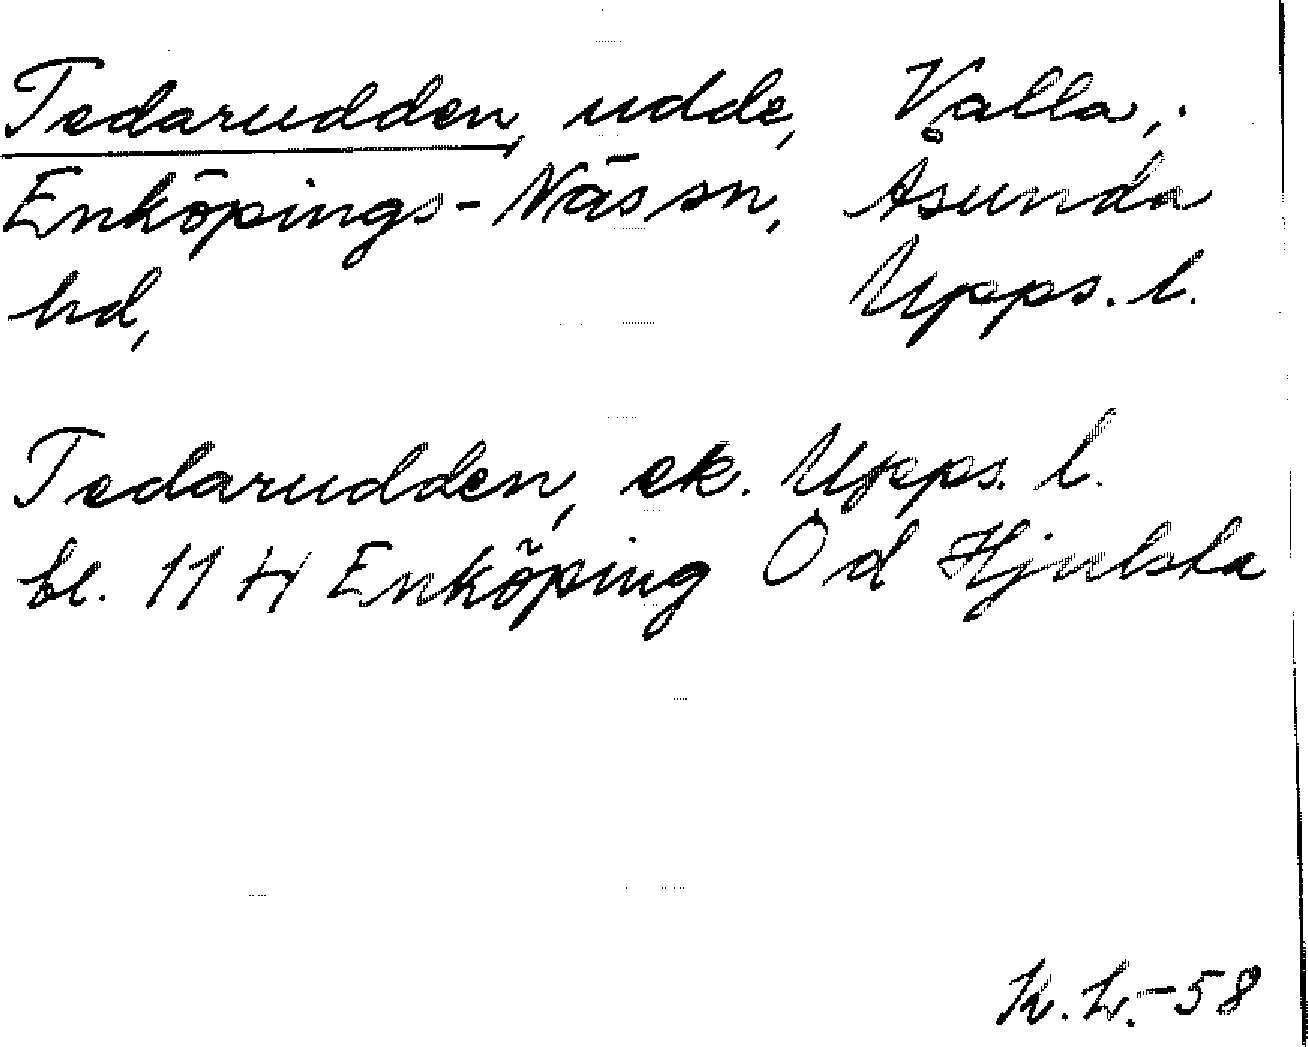 Tedarudden, udde, Valla,
Enköpings-Näs sn, Åsunda
hd, Upps. l.
Tedarudden, ek. Upps. l.
bl. 11 H Enköping Öd Hjulsta
K. L. -58